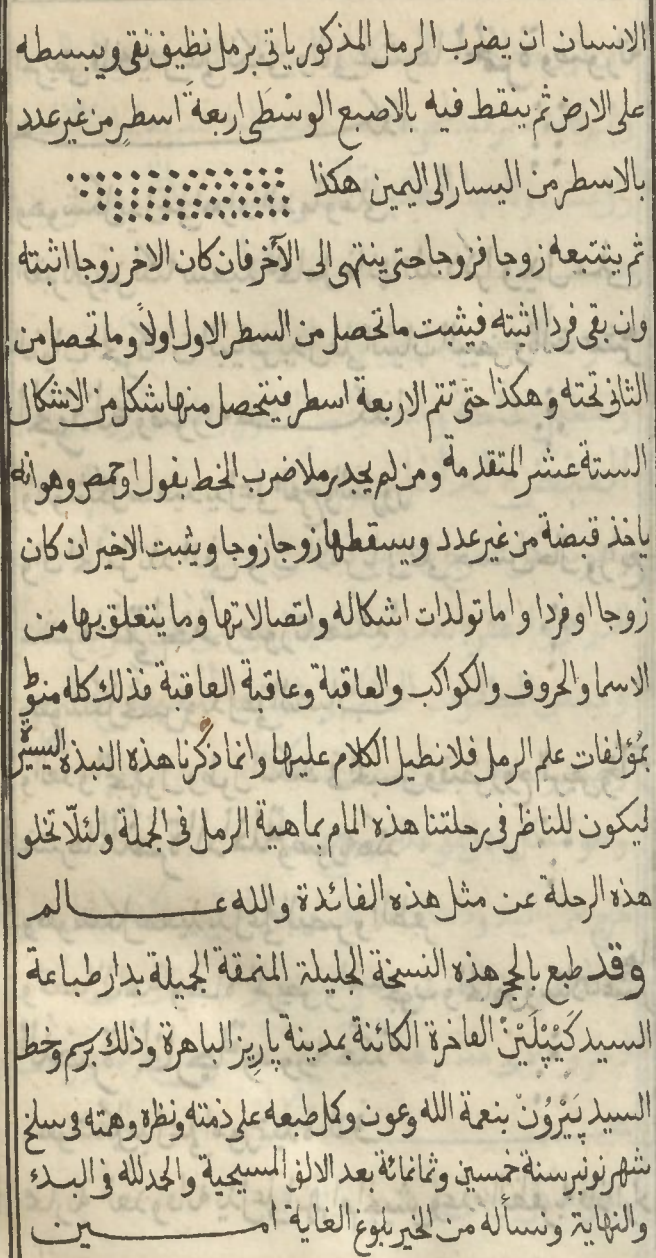 الانسان ان يضرب الرمل المذكور ياتى برمل نظيف نقى ويبسطه
على الارض ثم ينقط فيه بالاصبع الوسْطَى اربعةَ اسطرٍ من غير عدد
بالاسطر من اليسار الى اليمين هكذا
ثم يتتبعه زوجا فزوجا حتى ينتهى الى الآخر فان كان الاخر زوجا اثبته
وان بقى فردا اثبته فيثبت ما تحصل من السطر الاول اولاً وما تحصل من
الثانى تحته وهكذا حتى تتم الاربعة اسطر فيتحصل منها شكل من الاشكال
الستة عشر المتقدمة ومن لم يجد رملا ضرب الخط بفول او حمص وهو انه
ياخذ قبضة من غير عدد ويسقطها زوجا زوجا ويثبت الاخير ان كان
زوجا او فردا واما تولدات اشكاله واتصالاتها وما يتعلق بها من
الاسما والحروف والكواكب والعاقبة وعاقبة العاقبة فذلك كله منوط
بمُؤلفات علم الرمل فلا نطيل الكلام عليها وانما ذكرنا هذه النبذه اليسيرة
ليكون للناظر فى رحلتنا هذه المام بماهية الرمل فى الجملة ولئلّا تخلو
هذه الرحلة عن مثل هذه الفائدة والله عـــالم
وقد طبع بالحجر هذه النسخة الجليلة المنمقة الجميلة بدار طباعة
السيد كَيْپْلَيْنْ الفاخرة الكائنة بمدينة پاريز الباهرة وذلك برسم وخط
السيد پَيْرُونْ بنعمة الله وعون وكمل طبعه على ذمته ونظره وهمته فى سلخ
شهر نونبر سنة خمسين وثمانمائة بعد الالف المسيحية والحمد لله فى البدء
والنهاية ونسأله من الخير بلوغ الغاية امـــين